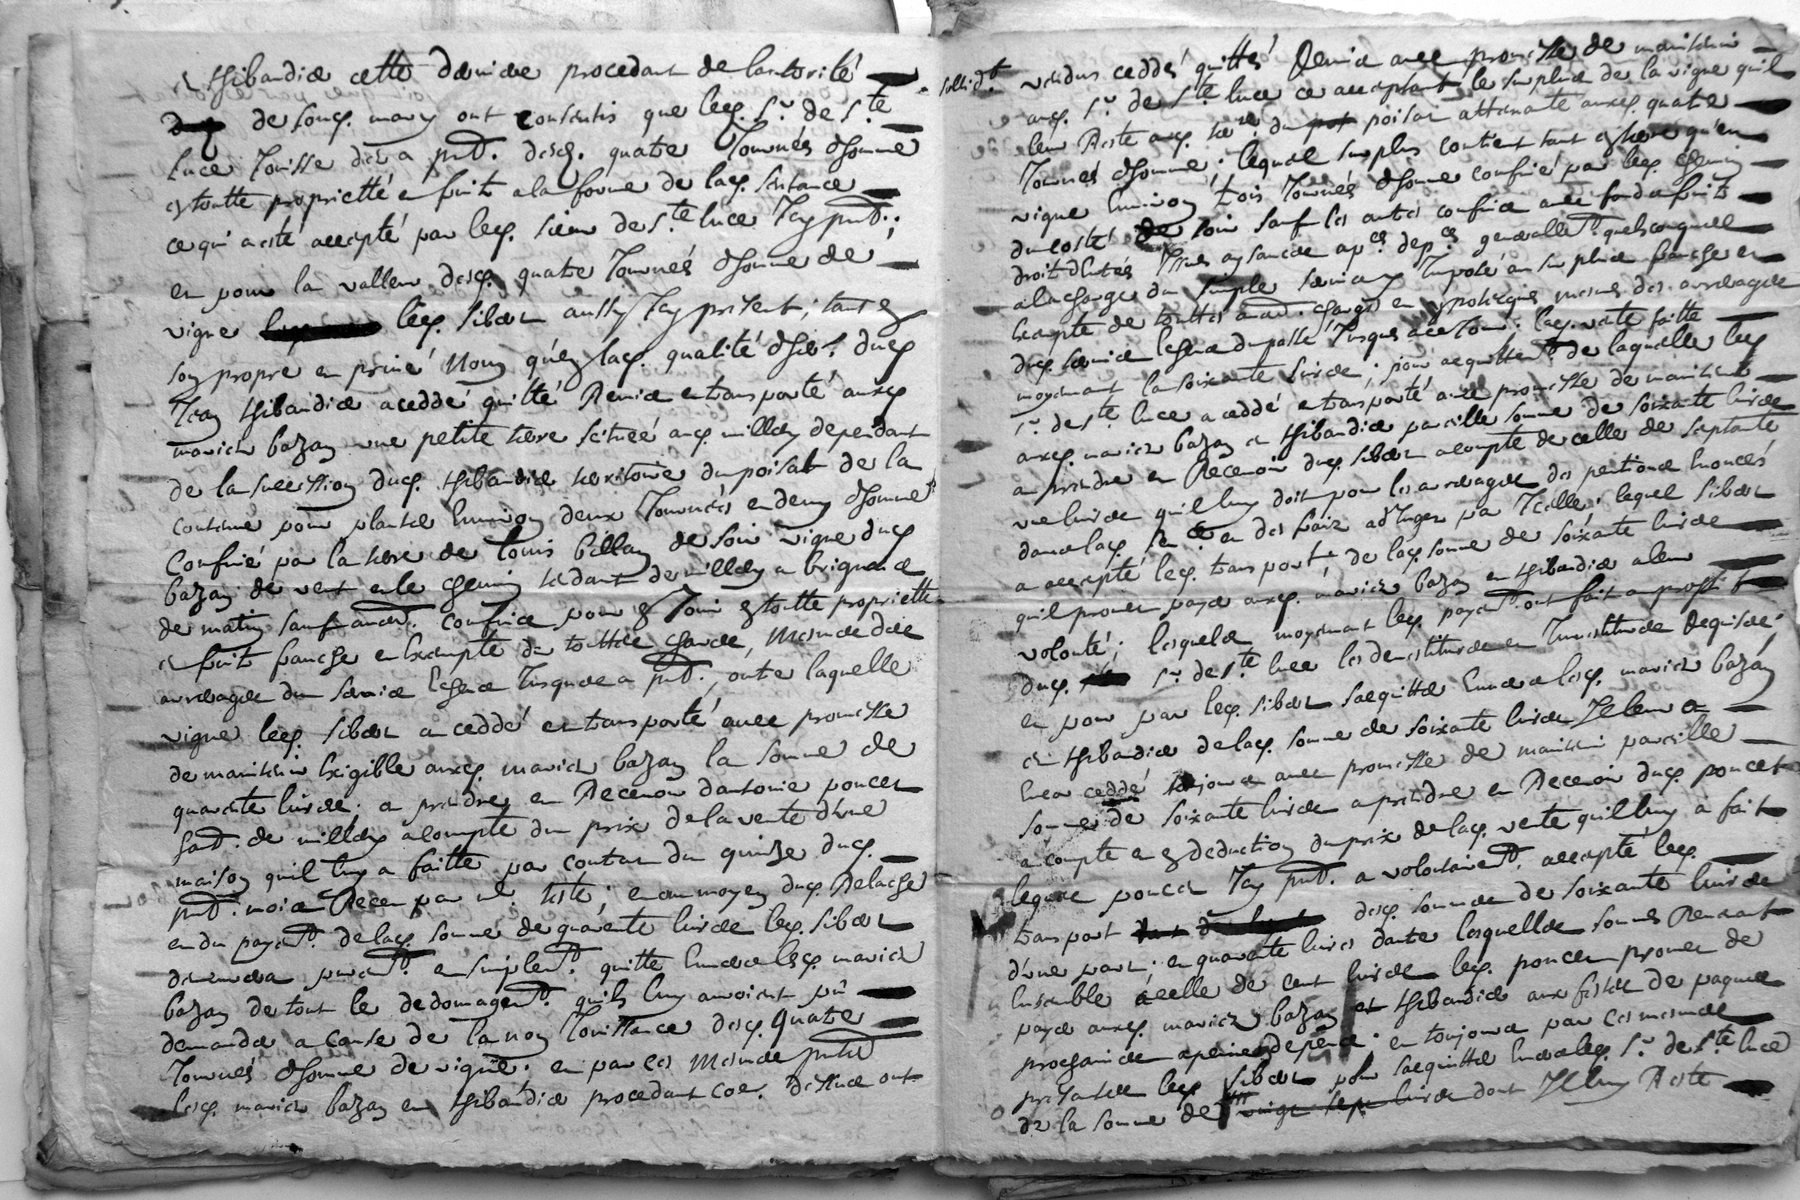 et thibaudier cette derniere procedant de lautorité
de soud. mary ont consentis que led. sr. de ste
luce Jouisse dez a pnt. desd. quatre Journés dhomme
en toutte proprietté en fruit a la forme de lad. sentance
ce qui a esté accepté par led. sieur de ste luce Icy pnt.;
et pour la valleur desd. quatre Journés dhomme de
vigne led. sibert aussy Icy present, tant en
son propre et privé Nom qu'en lad. qualité dher. dud
Jean thibaudier a ceddé quitté Remis et transporté auxd
mariés bazan une petite terre scituée aud. milley dependant
de la succession dud. thibaudier territoire du poisat de la
contenue pour planter Environ deux Journées et demy dhomme
Confiné par la terre de louis billan de soir vigne dud
bazan de vent et le chemin tendant de milley a brignais
de matin sauf autr. confins pour en Jouir en toutte proprietté
et fruit franche et Exempte de touttes charges, mesmes des
arrerages du servis Echeus Jusques a pnt., outre laquelle
vigne led. sibert a ceddé et transporté avec promesse
de maintenir Exigible auxd. mariés bazan la somme de
quarante livres, a prendre et Recevoir dantoine poncet
hant. de milley acompte du prix de la vente d'une
maison quil luy a faitte par contrat du quinze dud.
pnt. mois Receu par nre. ; et au moyen dud. Relache
et du payemt. de lad. somme de quarante livres led. sibert
demeurera puremt. et simplemt. quitte Envers lesd. mariés
bazan de tout le dedomagemt. quils luy auroient pû
demander a cause de la non Jouissance desd. quatre
Journés dhomme de vigne. et par ces mesmes pntes
lesd. mariés bazan et thibaudier procedant coe. dessus ont
vendus ceddés quittés Remis avec promesse de maintenir
aud. sr. de ste luce ce acceptant le surplus de la vigne quil
leur Reste aud. terre. du poisat attenante auxd. quatre
Journés dhomme; lequel surplus contient tant en terre qu'en
vigne Environ trois Journés dhomme confiné par led. chemin
du costé de soir sauf les autres confins avec fond et fruits
droits d'Entrés Issues aysances apces. depces. generallemt. quelsconques
a la charge du simple servis Imposé au surplus franche et
Exempte de touttes autr. charges et ypoteques mesmes des arrerages
dud. servis Echeus du passé Jusques a ce Jour. lad. vente faitte
moyenant la soixante livres; pour acquittemt. de laquelle led
sr. de ste luce a ceddé et transporté avec promesse de maintenir
auxd. mariés bazan et thibaudier pareille somme de soixante livres
a prendre et Recevoir dud. sibert acompte de celle de septante
une livres quil luy doit pour les arrerages des pentions Enoncés
dans lad. et des frais adjuges par Icelle; lequel sibert
a accepté led. transport, de lad. somme de soixante livres
quil promet payer auxd. mariés bazan et thibaudier a leur
volonté; lesquels moyenant led. payemt. ont fait au proffit
dud. sr. de ste luce les demestitures et Investitures Requises.
et pour par led. sibert sacquitter Envers lesd. mariés bazan
et thibaudier de lad. somme de soixante livres Il leur a
Encor ceddé toujours avec promesse de maintenir pareille
somme de soixante livres a prendre et Recevoir dud. poncet
a compte et en deduction du prix de lad. vente quil luy a fait
lequel poncet Icy pnt. a volontairemt. accepté led.
transport desd. sommes de soixante livres
d'une part; et quarante livres dautre lesquelles sommes Revenant
Ensemble a celle de cent livres led. poncet promet de
payer auxd. mariés bazan et thibaudier aux festes de paques
prochaines a peine de depens. et toujours par ces mesmes
presantes led. sibert pour sacquitter Envers led. sr. de ste luce
de la somme de livres dont Il luy Reste